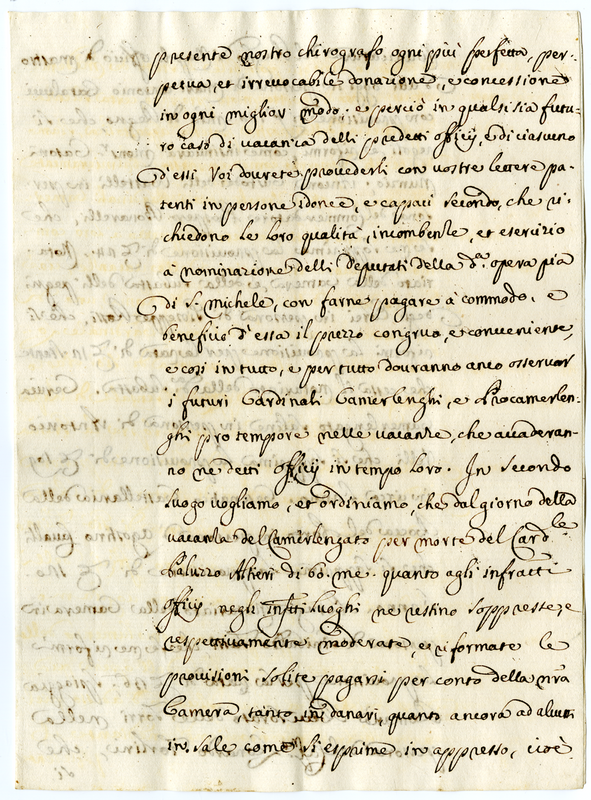 presente nostro chirografo ogni più perfetta, per-
petua, et irrevocabile donazione, e concessione
in ogni miglior modo, e perciò in qualsisia futu-
ro caso di vacanza delli predetti offitij, e di ciascuno
d'essi Voi dovrete provederli con vostre lettere pa-
tenti in persone idonee, e capaci secondo, che ri-
chiedono le loro qualità, incombenze, et esercizio
à nominazione delli Deputati della d.ª opera pia
di S. Michele, con farne pagare à commodo, e
beneficio d'essa il prezzo congruo, e conveniente,
e così in tutto, e per tutto dovranno anco osservar
i futuri Cardinali Camerlenghi, e Procamerlen-
ghi pro tempore nelle vacanze, che accaderan-
no ne detti offitij in tempo loro. In secondo
luogo vogliamo, et ordiniamo, che dal giorno della
vacanza del Camerlengato per morte del Card.le
Paluzzo Altieri di bo: me: quanto agli infratti
offitij negli infrtti luoghi ne restino soppresse, e
respettivamente moderate, e riformate le
provisioni solite pagarsi per conto della nrã
Camera, tanto in danari, quanto ancora ad alcuni
in sale come si esprime in appresso, cioè